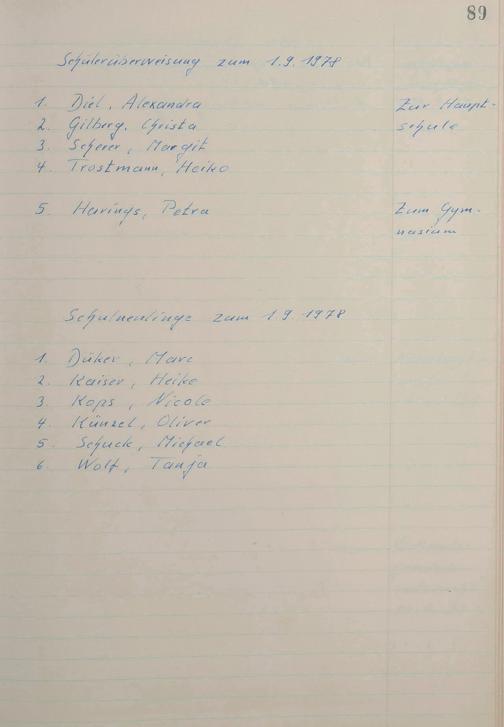 89
Schülerüberweisung zum 1.9.1978
1. Diel, Alexandra Zur Haupt-
2. Gilberg, Christa schule
3. Scherer, Margit
4. Trostmann, Heiko
5. Harings, Petra Zum Gym-
nasium
Schulneulinge zum 1.9.1978
1. Düker, Marc
2. Kaiser, Heike
3. Kops, Nicole
4. Künzel, Oliver
5. Schuck, Michael
6. Wolf, Tanja